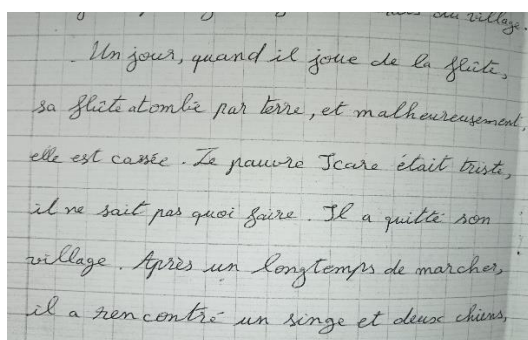 du village.
Un jour, quand il joue de la flûte,
sa flûte atombé par terre, et malheureusement,
elle est cassée. Le pauvre Icare était triste,
il ne sait pas quoi faire. Il a quitté son
village. Après un longtemps de marcher,
il a rencontré un singe et deux chiens,